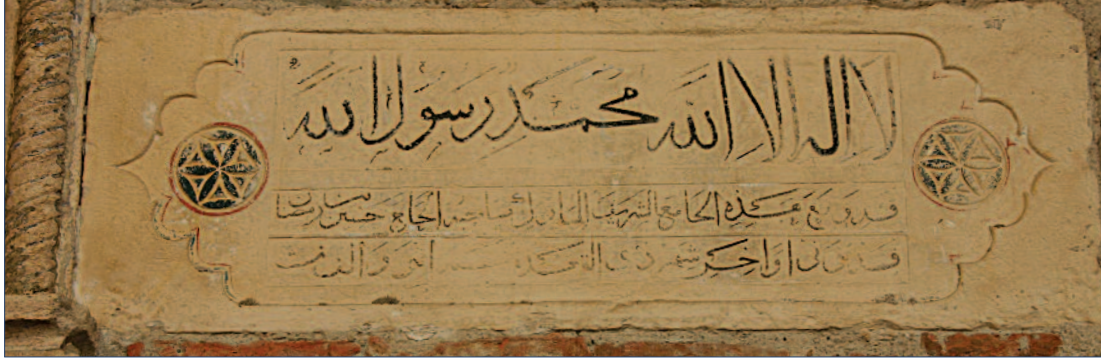 لا اله الا الله محمد رسول الله
قد وقع هذه الجامع الشريف المبارك صاحب الحاج حسن
قد وقع فى اواخر شهر ذى القعده سنه والف